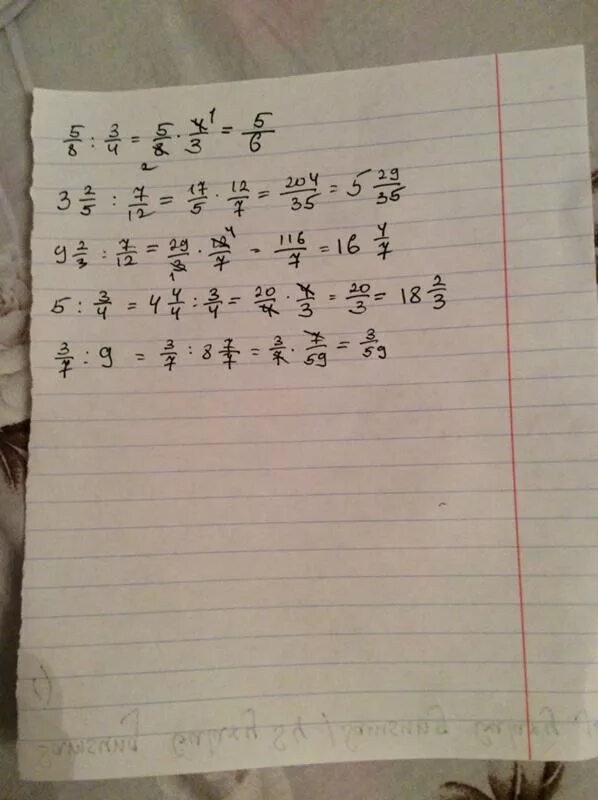 5/8 : 3/4 = 5/8 2 · 4/3 1 = 5/6
3 2/5 : 7/12 = 17/5 · 12/7 = 204/35 = 5 29/35
9 2/3 : 7/12 = 29/3 1 · 12/7 4 = 116/7 = 16 4/7
5 : 3/4 = 4 4/4 : 3/4 = 20/4 · 4/3 = 20/3 = 18 2/3
3/7 : 9 = 3/7 : 8 7/7 = 3/7 · 7/59 = 3/59